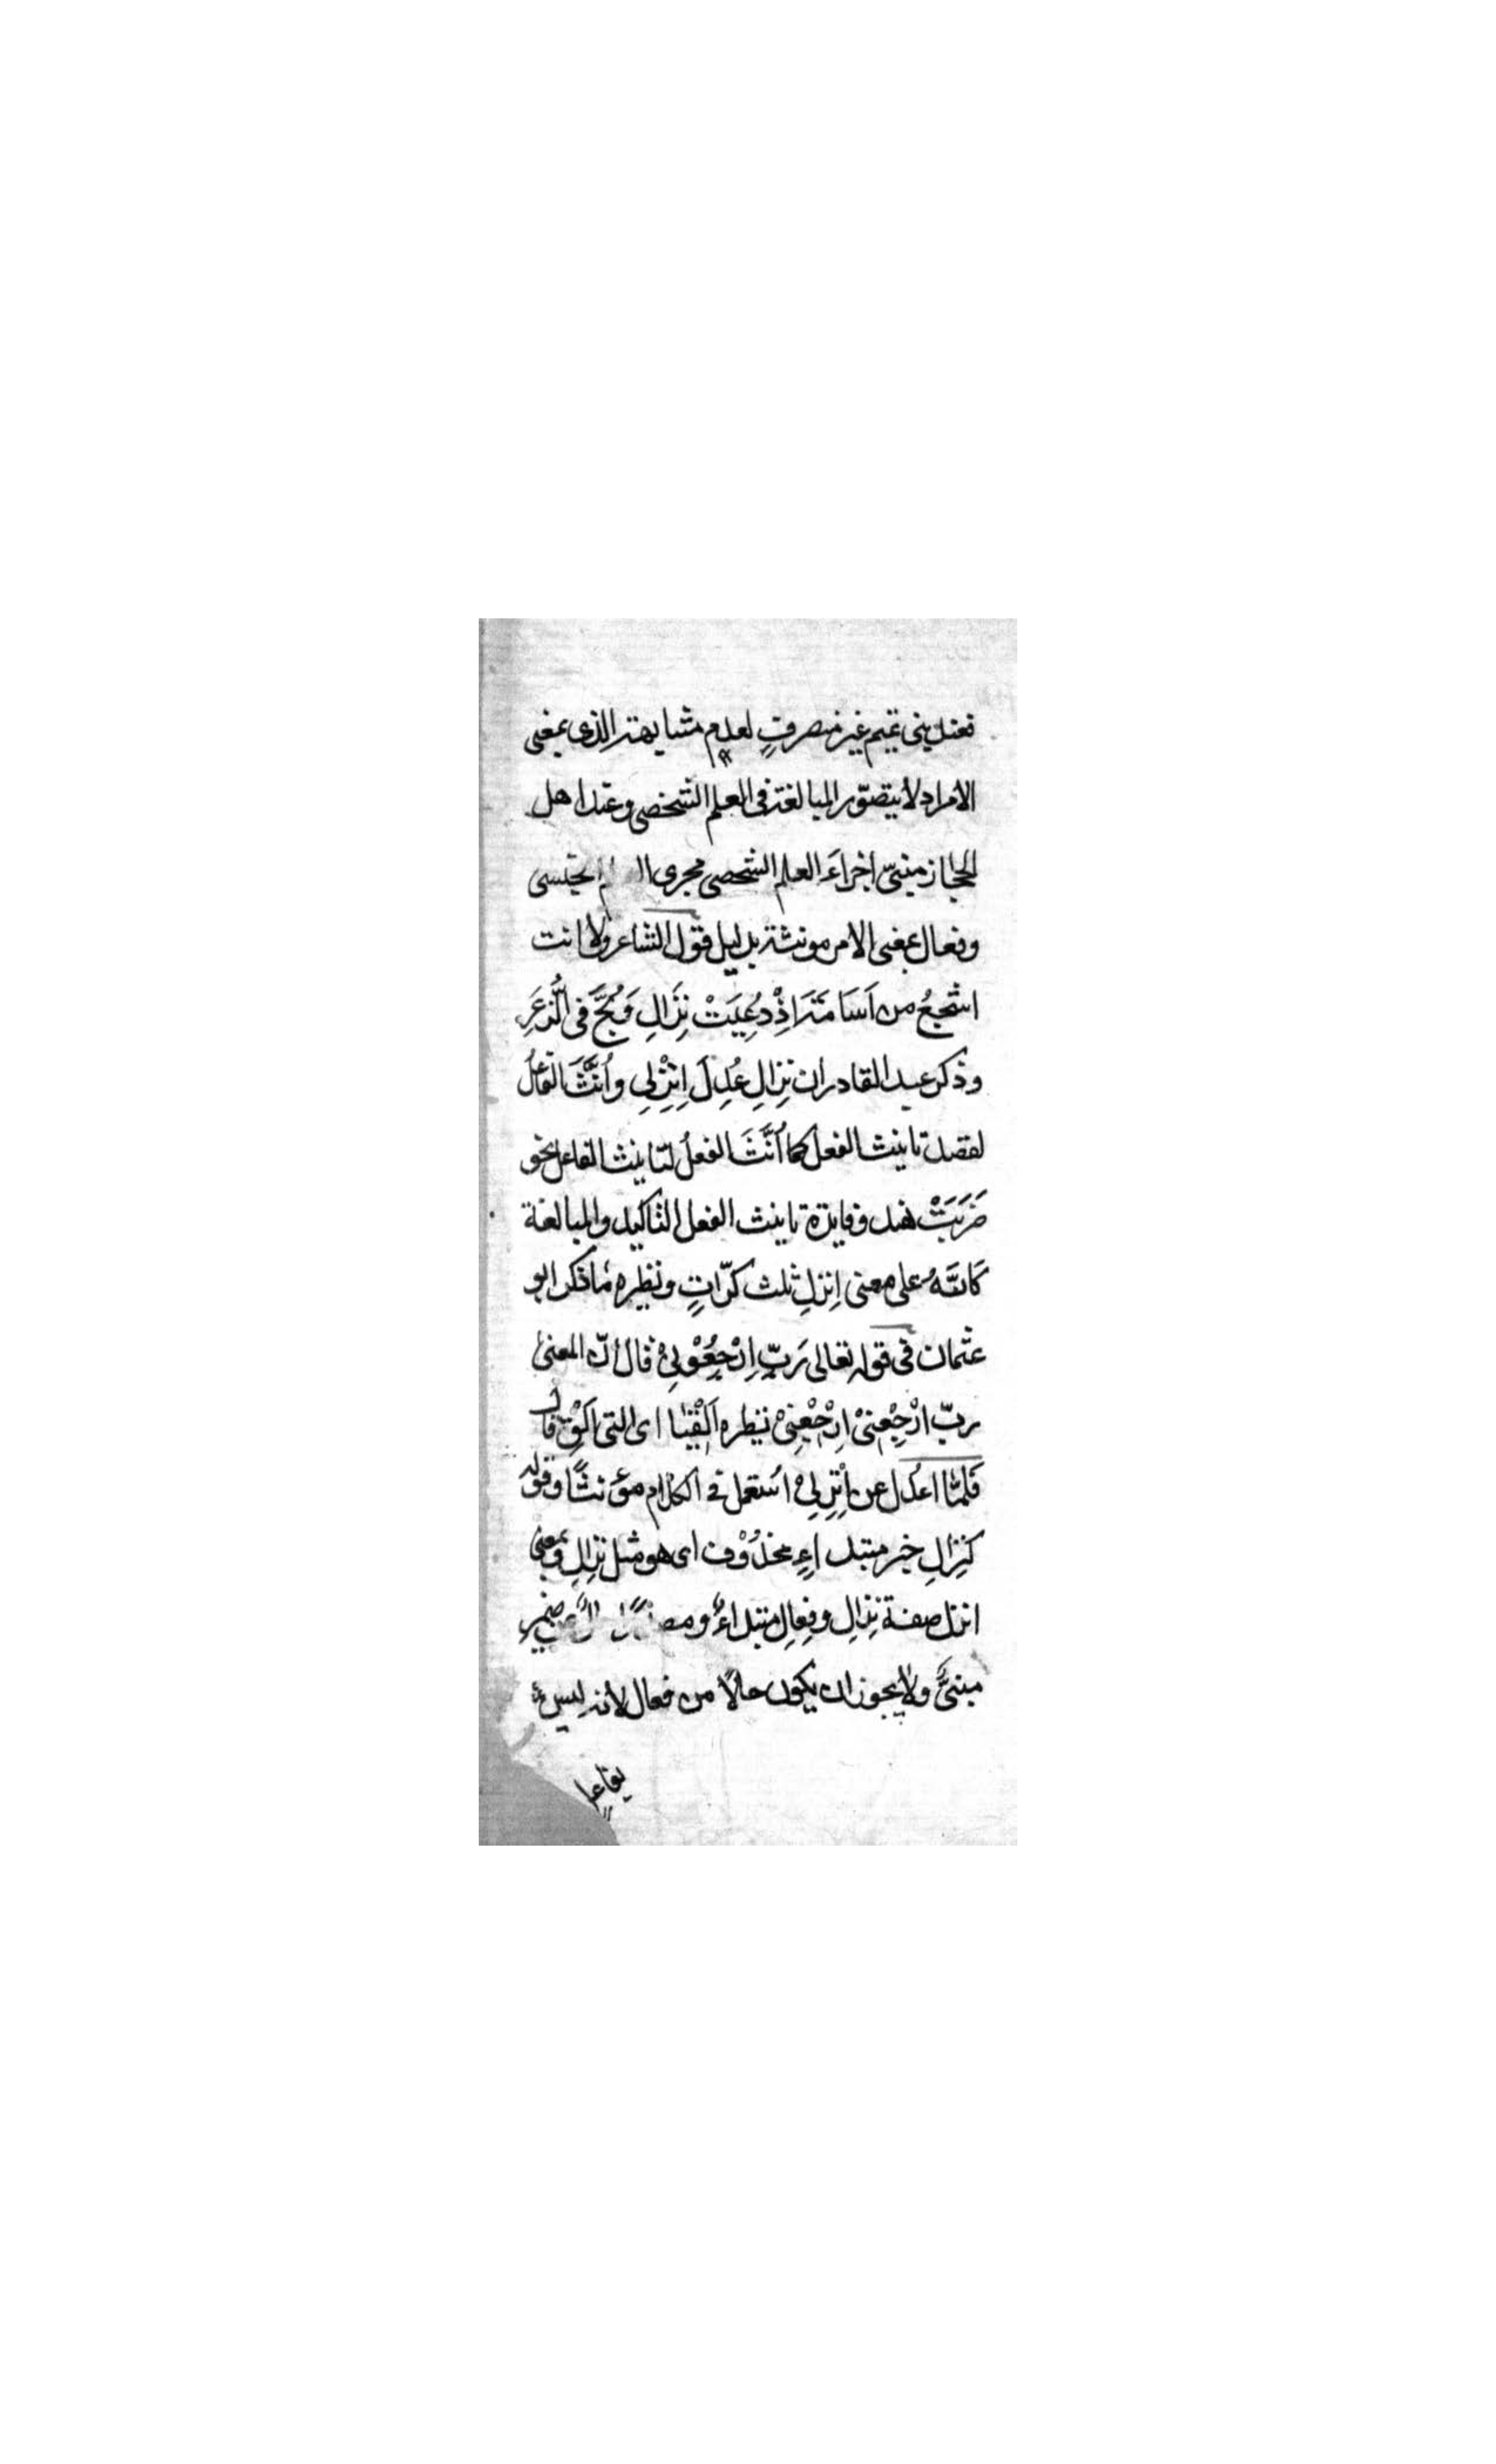 فعند بنى تميم غير منصرفٍ لعدم مشابهته الذى بمعنى
الامر اذ لا يتصوّر المبالغة فى العلم الشخصى وعند اهل
الحجاز مبنىّ اجراءَ العلم الشخصى مجرى الجنسى
وفعال بمعنى الامر مونثة بدليل قول الشاعر ولا انت
اشجعُ من اَسَامَةَ اِذْ دُعِيَتْ نَزَالِ وَلُجَّ فى الذُّعَرِ
وذكر عبد القادر ان نزالِ عُدِلَ اِنْزِلِى واُنِّثَ الفاعلُ
لقصد تانيث الفعل كما اُنِّثَ الفعلُ لتانيث الفاعل نحو
ضَرَبَتْ هند وفايدة تانيث الفعل التاكيد والمبالغة
كَانَّهُ على معنى اِنزلِ ثلث كرّاتٍ ونظيره ما ذكر ابو
عثمان فى قوله تعالى رَبِّ اِرْجِعُوْنِىْ قال انّ المعنى
ربّ ارْجِعْنِىْ اِرْجِعْنِىْ نيظره اَلْقِيَا اى الق اَلْقِ قال
فَلمّا اعدل عن اِنْزِلِىْ استعمل فى الكلام مؤنثًا وقوله
كَنَزَالِ خبر مبتداءٍ محذُوْف اى هو مثل نزالِ وبمعنى
انزل صفة نزالِ وفعالِ مبتداءٌ
مبنىٌّ ولا يجوز ان يكون حالًا من فعال لانه ليس
بفاعل